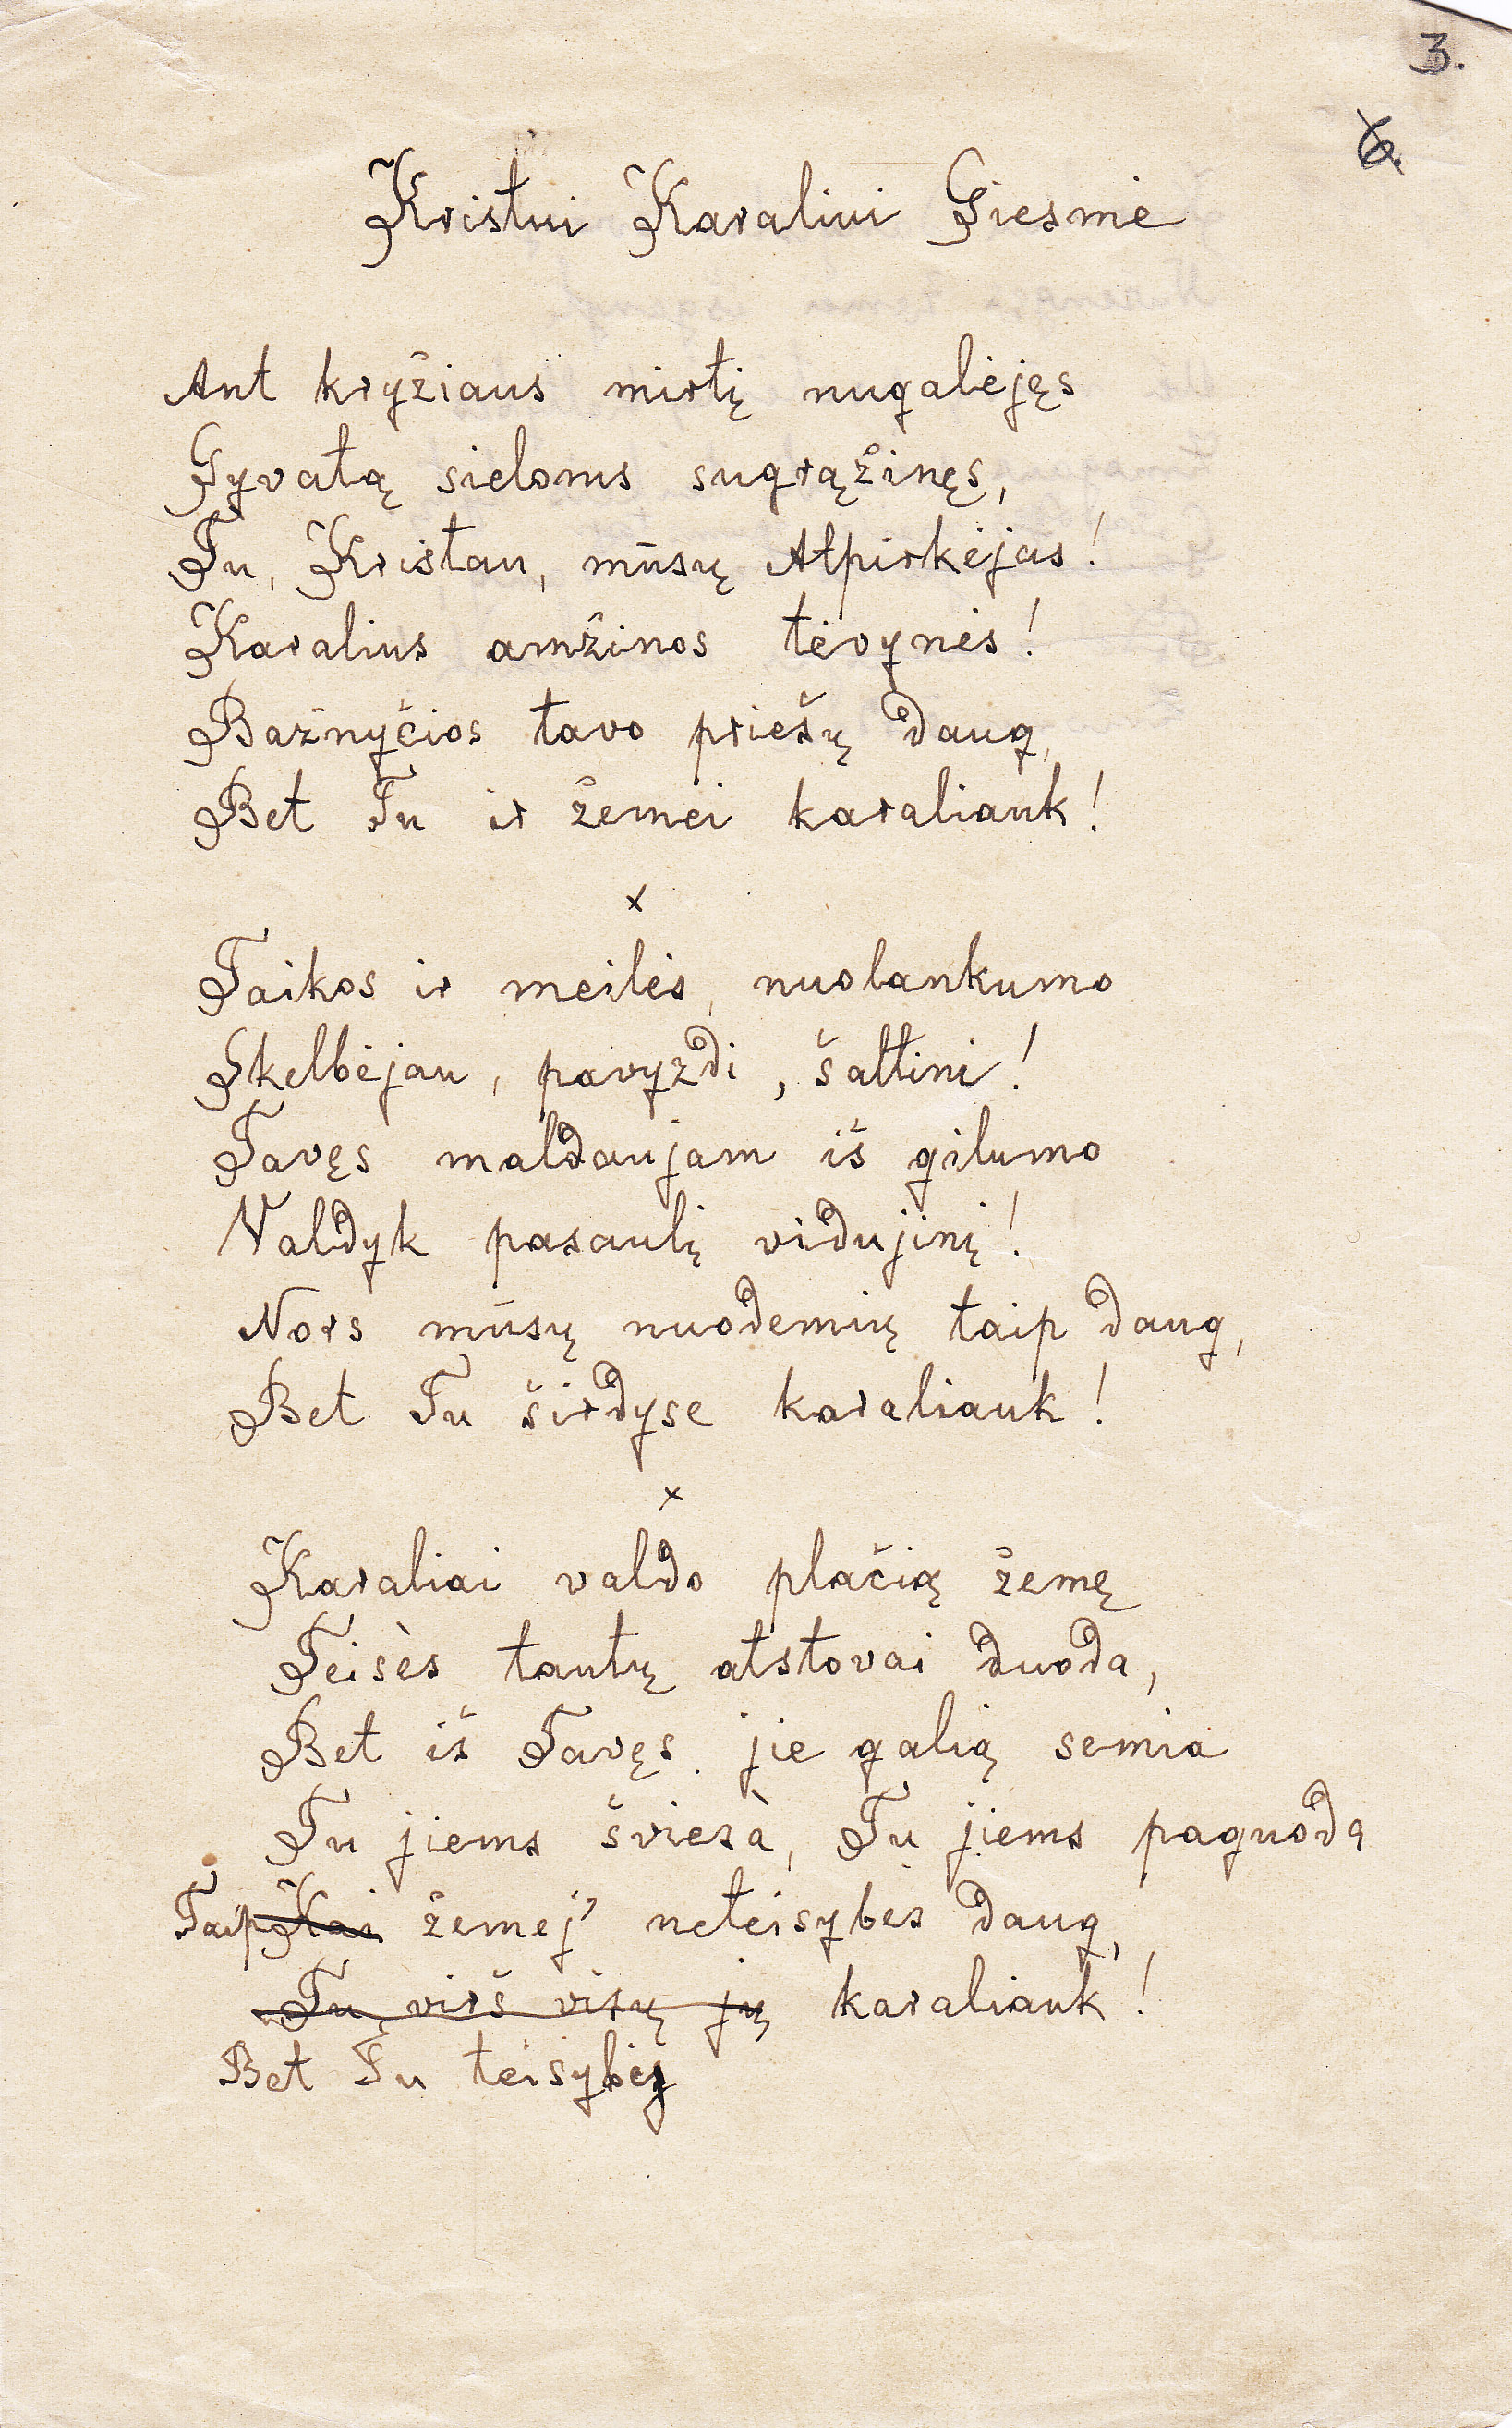 3.
6.
Kristui Karaliui Giesmė
Ant kryžiaus mirtį nugalėjęs
Gyvatą sieloms sugrąžinęs,
Tu, Kristau, mūsų Atpirkėjas!
Karalius amžinos tėvynės!
Bažnyčios tavo priešų daug,
Bet Tu ir žemei karaliauk!
x
Taikos ir meilės, nuolankumo
Skelbėjau, pavyzdi, šaltini!
Tavęs maldaujam iš gilumo
Valdyk pasaulį vidujinį!
Nors mūsų nuodemių taip daug,
Bet Tu širdyse karaliauk!
x
Karaliai valdo plačią žemę
Teisès tautų atstovai duoda,
Bet iš Tavęs jie galią semia
Tu jiems šviesà, Tu jiems paguoda
Taip Kai žemėj' neteisybės daug,
Tu, virš visų jų karaliauk!
Bet Tu teisybėj